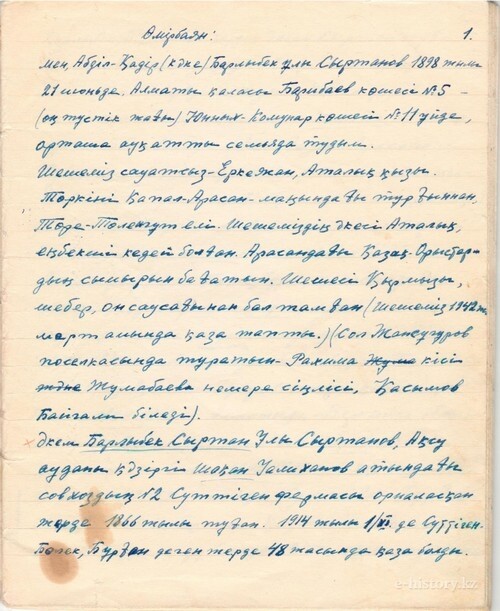 Өмірбаян: 1.
Мен, Абділ-Қадір (Кәке) Барлыбек ұлы Сыртанов 1898 жылы
21 июньде. Алматы қаласы Барибаев көшесі №5 –
(оң түстік жағы) Юнных-Комунар көшесі № 11 үйде,
орташа ауқатты семьяда тудым.
Шешеміз сауатсыз-Еркежан, Аталық қызы.
Төркіні Қапал-Арасан-маңындағы тұрғыннан,
Төре-Төленгут елі. Шешеміздің әкесі Аталық,
еңбекші кедей болған. Арасандағы Қазақ-Орыстар-
дың сиырын бағатын. Шешесі Қырмызы,
шебер, он саусағынан бал тамған (Шешеміз 1942 ж
март айында қаза тапты.) (Сол Жансугуров
поселкасында туратын-Рахима кісі
Жумабаева немере сіңлісі, Қасымов
Байгали біледі).
Әкем Барлыбек Сыртан Ұлы Сыртанов, Ақсу
ауданы қәзіргі Шоқан Уалиханов атындағы
совхоздың №2 Суттіген фермасы орналасқан
жерде 1866 жылы туған. 1914 жылы 1/XI де Сүттіген-
Бөлек, Бурған деген жерде 48 жасында қаза болды.
e-history.kz